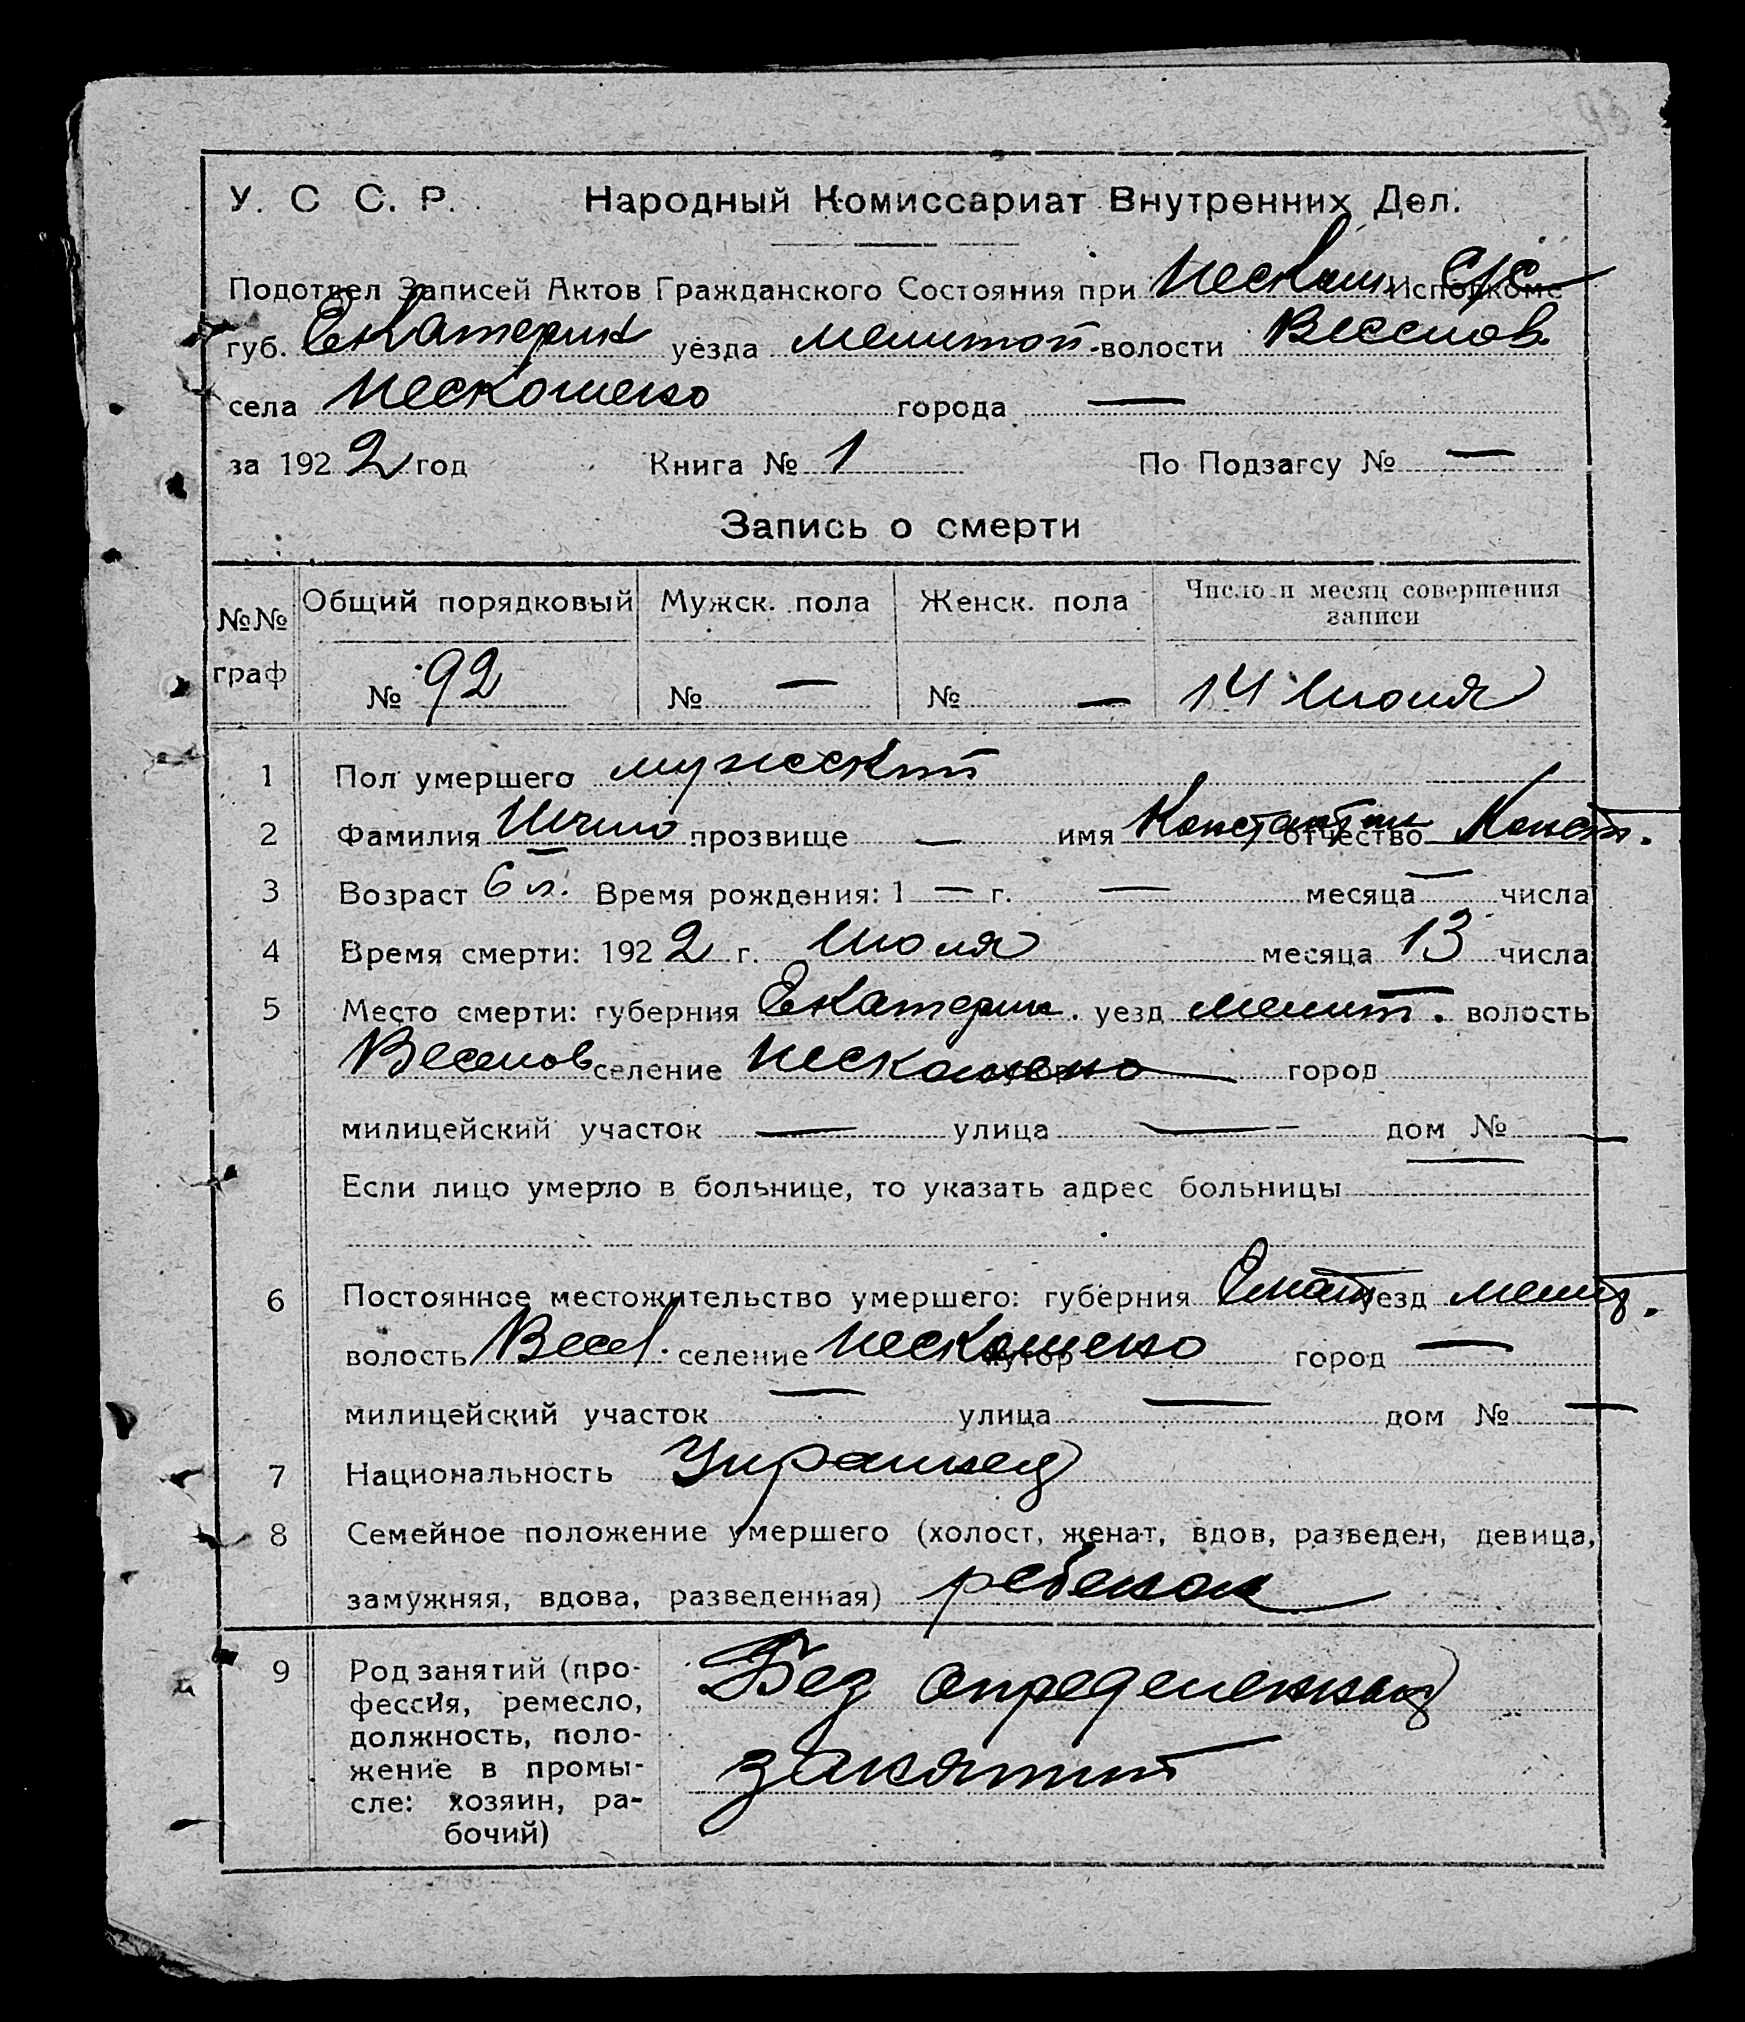 У. С С. Р. Народный Комиссариат Внутренних Дел.
Подотдел Записей Актов Гражданского Состояния при Нескош. С/С Исполкоме
губ. Екатерин уезда мелитоп. волости Веселов.
села Нескошено города —
за 1922 год Книга № 1 По Подзагсу № —
Запись о смерти
№№ граф Общий порядковый Мужск. пола Женск. пола Число и месяц совершения
записи
№ 92 № — № — 14 июля
1 Пол умершего мужеский
2 Фамилия прозвище — имя Константин отчество Конст.
3 Возраст 6 л. Время рождения: 1 — г. — месяца — числа
4 Время смерти: 1922 г. июля месяца 13 числа
5 Место смерти: губерния Екатерин. уезд мелит. волость
Веселов селение Нескошено город
милицейский участок — улица — дом № —
Если лицо умерло в больнице, то указать адрес больницы —
6 Постоянное местожительство умершего: губерния Екат уезд мелит.
волость Весел. селение Нескошено хутор город —
милицейский участок — улица — дом № —
7 Национальность Украинец
8 Семейное положение умершего (холост, женат, вдов, разведен, девица,
замужняя, вдова, разведенная) ребенок
9 Род занятий (про-
фессия, ремесло,
должность, поло-
жение в промы-
сле: хозяин, ра-
бочий)
Без определенных
занятий